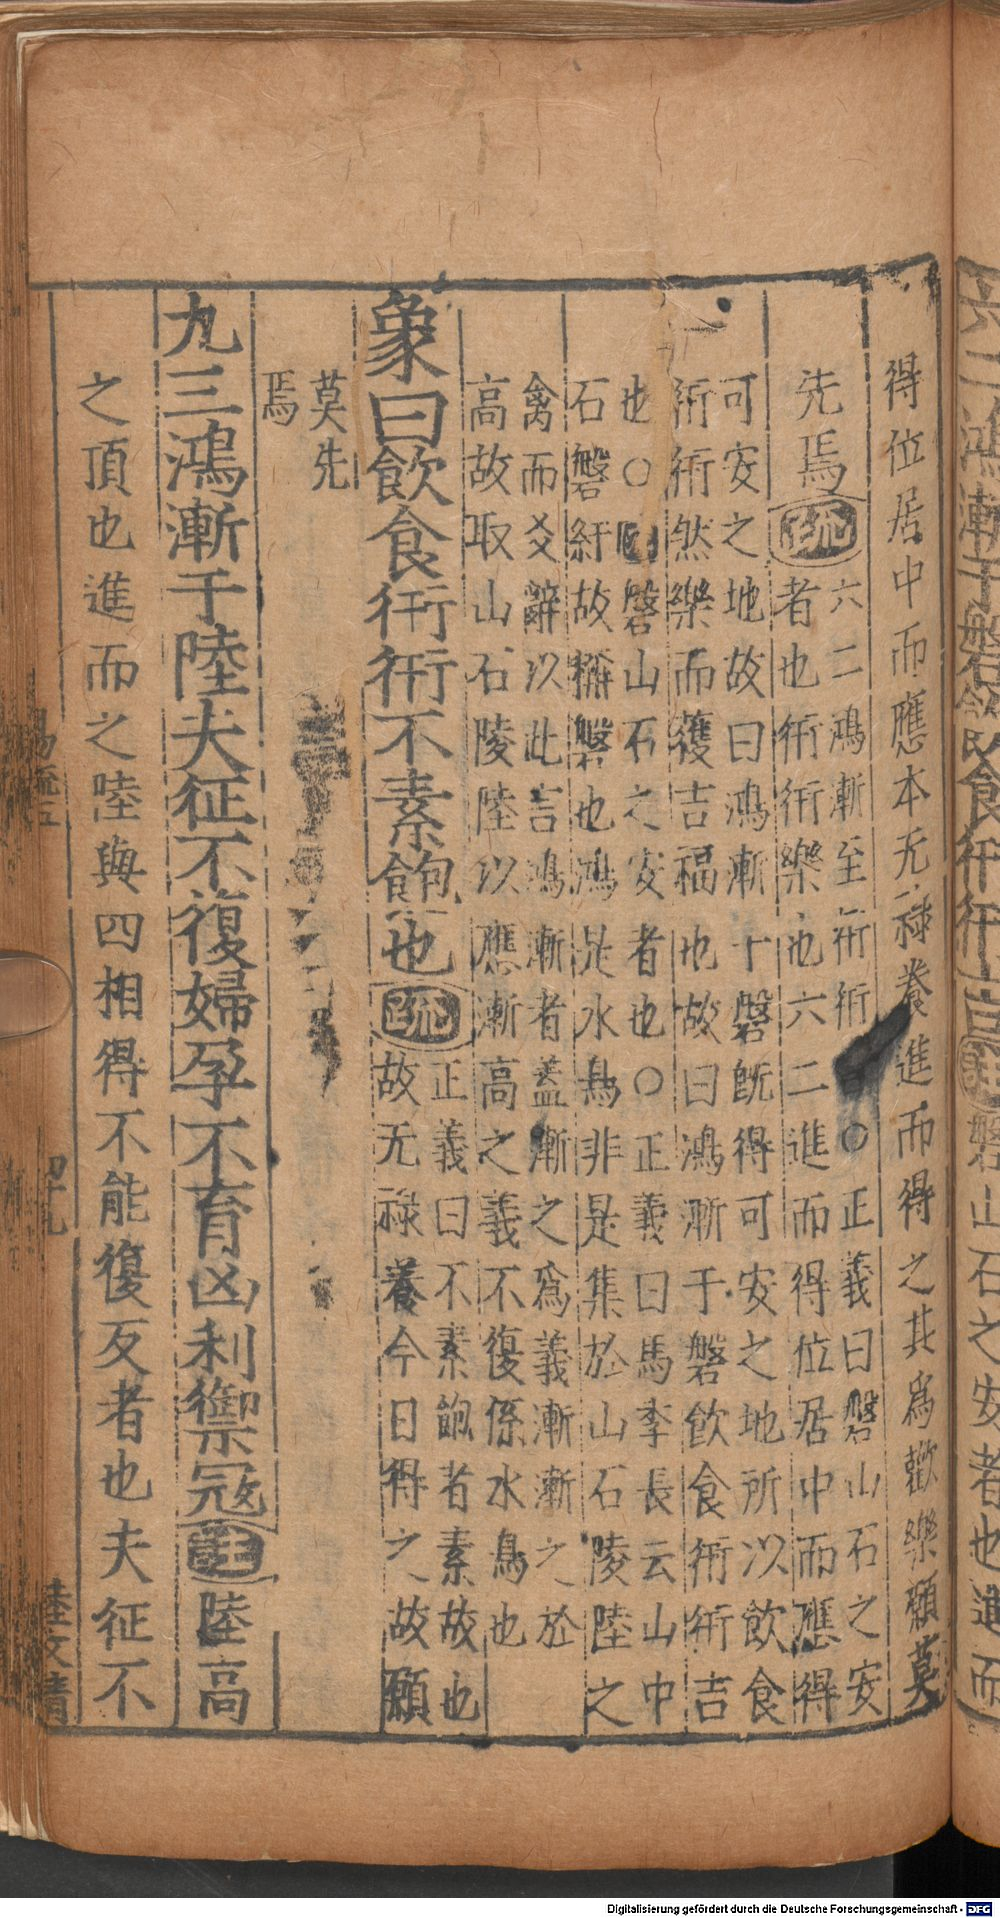 得位居中而應本无祿養進而得之其爲歡樂願莫
先焉疏
六二鴻漸至衎衎吉○正義曰磐山石之安
者也衎衎樂也六二進而得位居中而應得
可安之地故曰鴻漸于磐旣得可安之地所以飲食
衎衎然樂而獲吉福也故曰鴻漸于磐飲食衎衎吉
也○磐山石之安者也○正義曰馬季長云山中
石磐紆故稱磐也鴻是水鳥非是集於山石陵陸之
禽而爻辭以此言鴻漸者蓋漸之爲義漸漸之於
高故取山石陵陸以應漸高之義不復係水鳥也
象曰飲食衎衎不素飽也疏
正義曰不素飽者素故也
故无祿養今日得之故願
莫先
焉
九三鴻漸于陸夫征不復婦孕不育凶利禦寇注陸高
之頂也進而之陸與四相得不能復反者也夫征不
易疏五
四十九
陸文清
山石之安者也進而
Digitalisierung gefördert durch die Deutsche Forschungsgemeinschaft - DFG